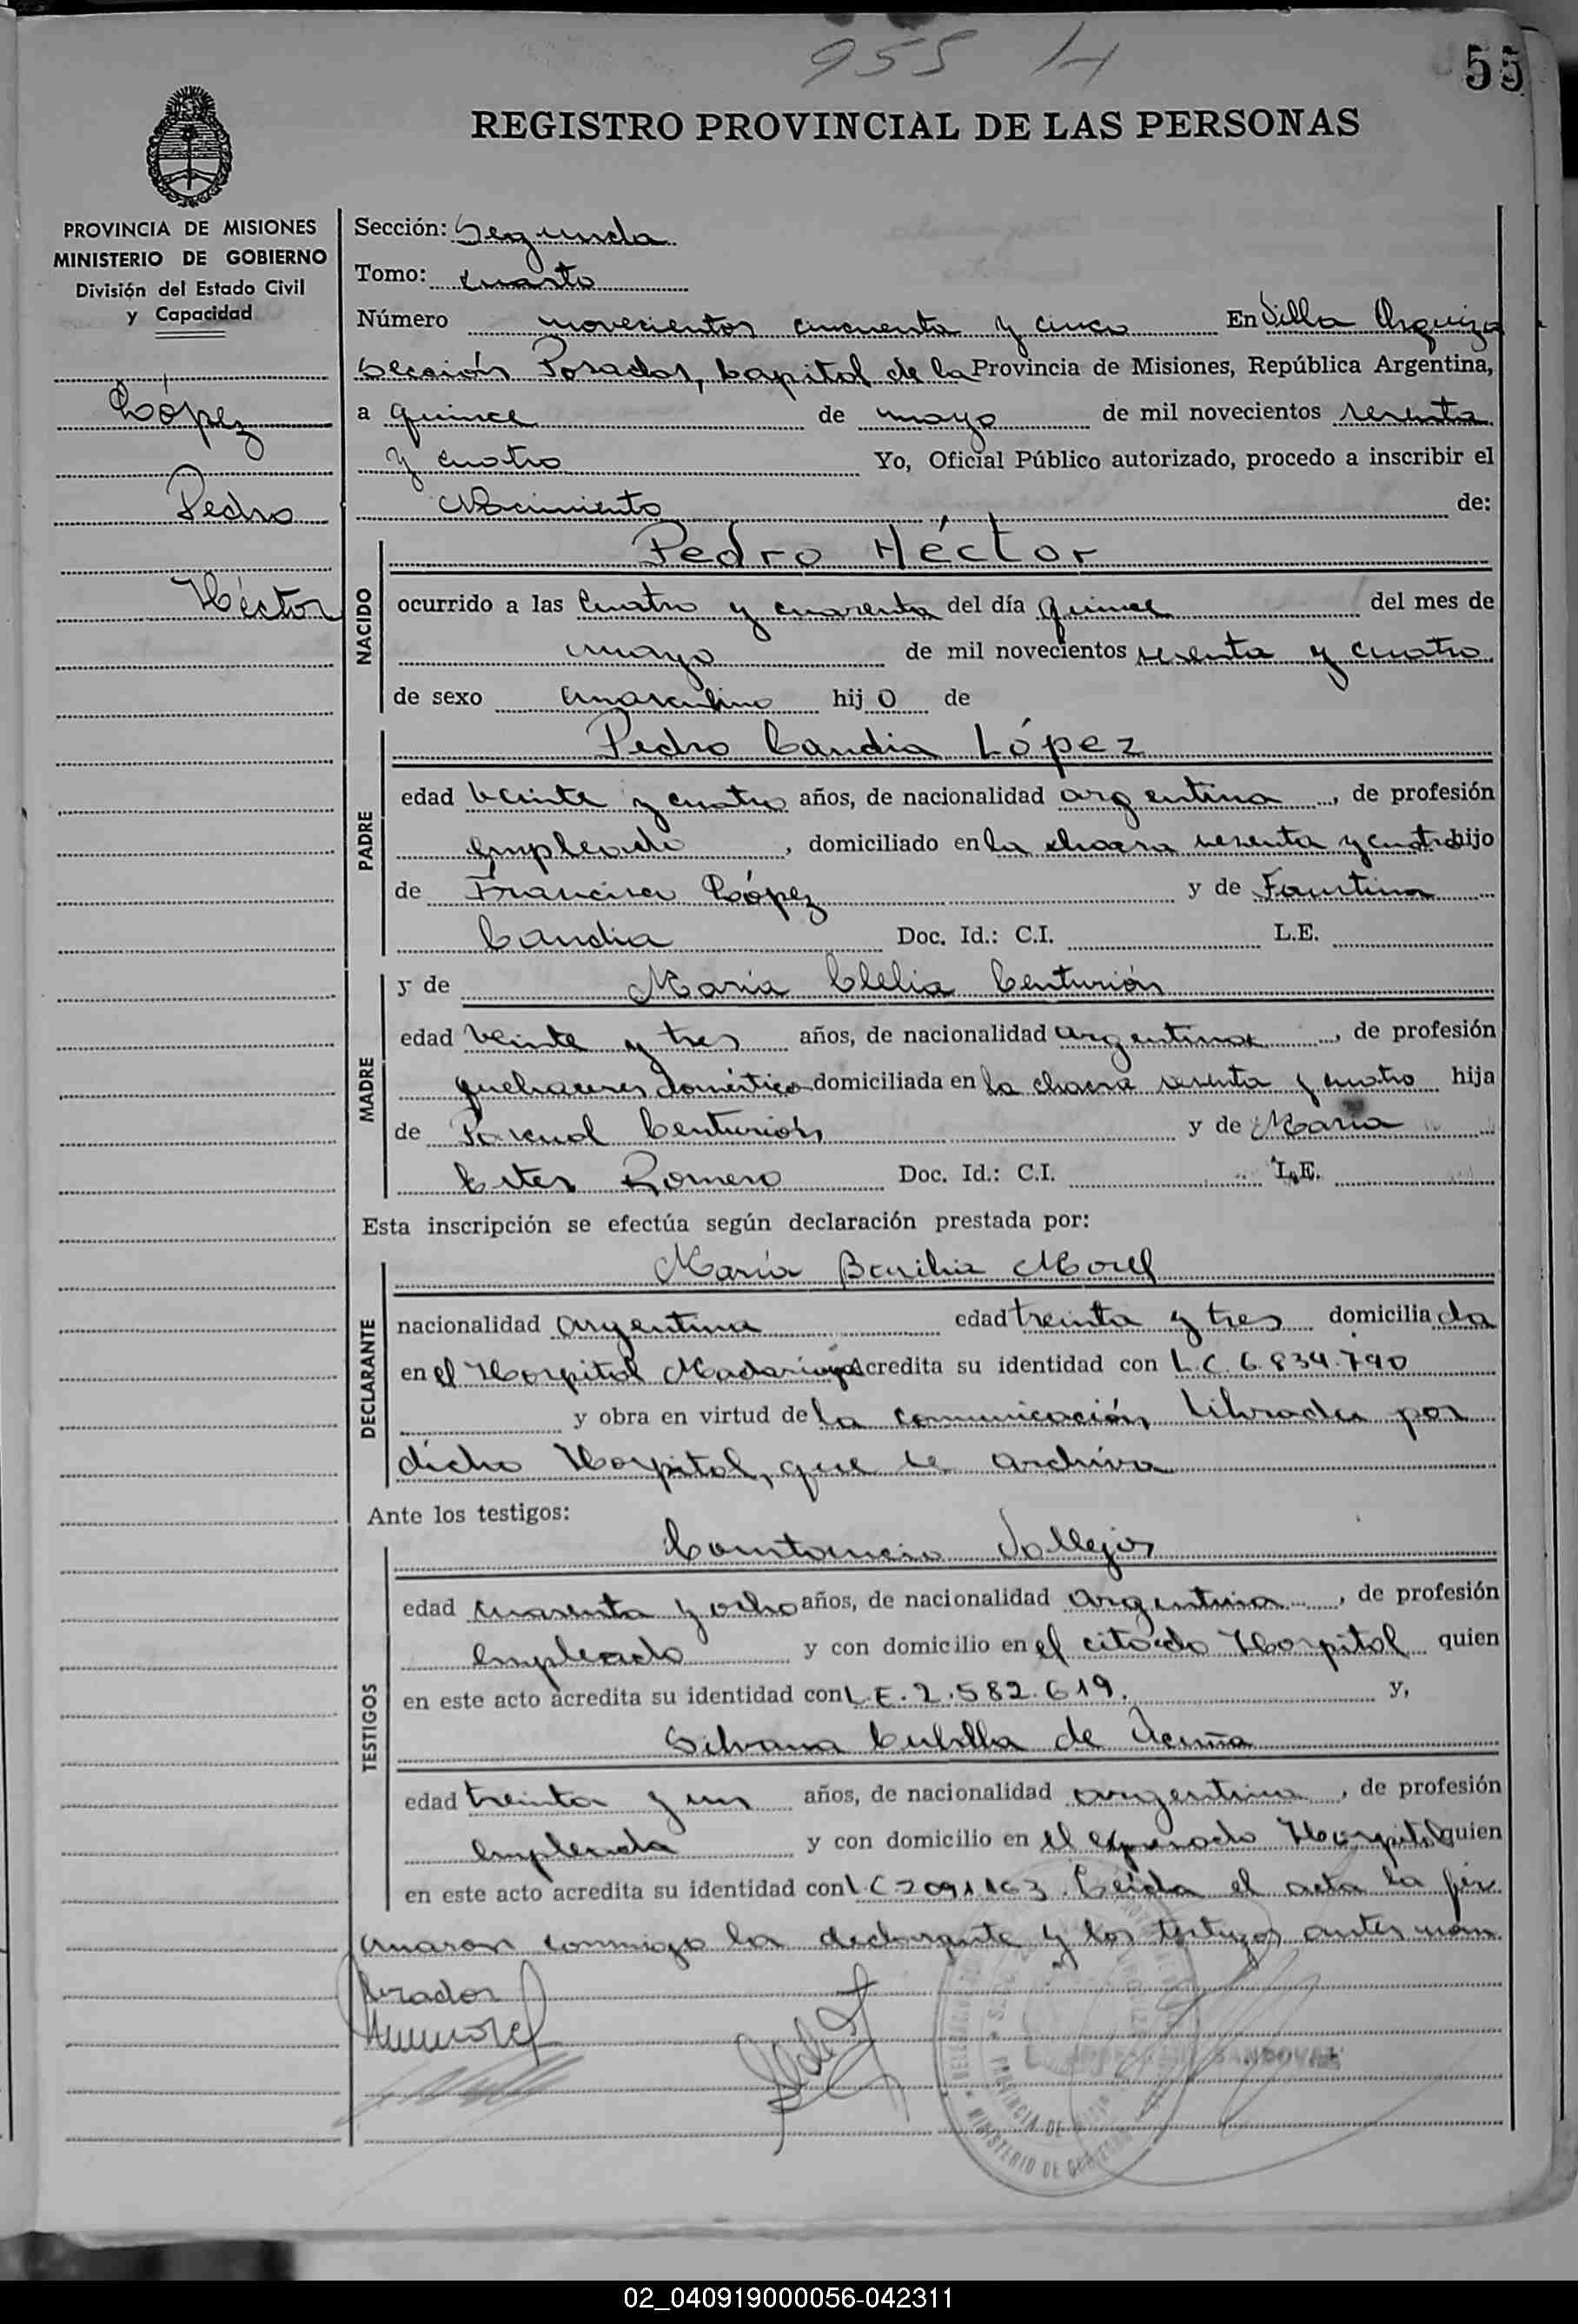 955 H
55
REGISTRO PROVINCIAL DE LAS PERSONAS
PROVINCIA DE MISIONES
MINISTERIO DE GOBIERNO
División del Estado Civil
y Capacidad
López
Pedro
Héctor
Sección: Segunda
Tomo: cuarto
Número novecientos cincuenta y cinco En Villa Urquiza
Sección Posadas, Capital de la Provincia de Misiones, República Argentina,
a quince de mayo de mil novecientos sesenta
y cuatro Yo, Oficial Público autorizado, procedo a inscribir el
Nacimiento de:
NACIDO
Pedro Héctor
ocurrido a las cuatro y cuarenta del día quince del mes de
mayo de mil novecientos sesenta y cuatro
de sexo masculino hijo de
PADRE
Pedro Candia López
edad veinte y cuatro años, de nacionalidad argentina, de profesión
empleado, domiciliado en la chacra sesenta y cuatro hijo
de Francisco López y de Faustina
Candia Doc. Id.: C.I. L.E.
MADRE
y de María Clelia Centurión
edad veinte y tres años, de nacionalidad argentina, de profesión
quehaceres domésticos domiciliada en la chacra sesenta y cuatro hija
de Pascual Centurión y de María
Ester Romero Doc. Id.: C.I. L.E.
Esta inscripción se efectúa según declaración prestada por:
DECLARANTE
María Basilia Morel
nacionalidad argentina edad treinta y tres domiciliada
en el Hospital Madariaga acredita su identidad con L.C. 6.834.790
y obra en virtud de la comunicación librada por
dicho Hospital, que se archiva
Ante los testigos:
TESTIGOS
Constancio Vallejos
edad cuarenta y ocho años, de nacionalidad argentina, de profesión
empleado y con domicilio en el citado Hospital quien
en este acto acredita su identidad con L.E. 2.582.619. y,
Silvana Cubilla de Acuña
edad treinta y un años, de nacionalidad argentina, de profesión
empleada y con domicilio en el expresado Hospital quien
en este acto acredita su identidad con L.C 2091163. Leída el acta la fir
maron conmigo la declarante y los testigos antes nom
brados
SANDOVAL
PROVINCIA DE
MINISTERIO DE
02_040919000056-042311